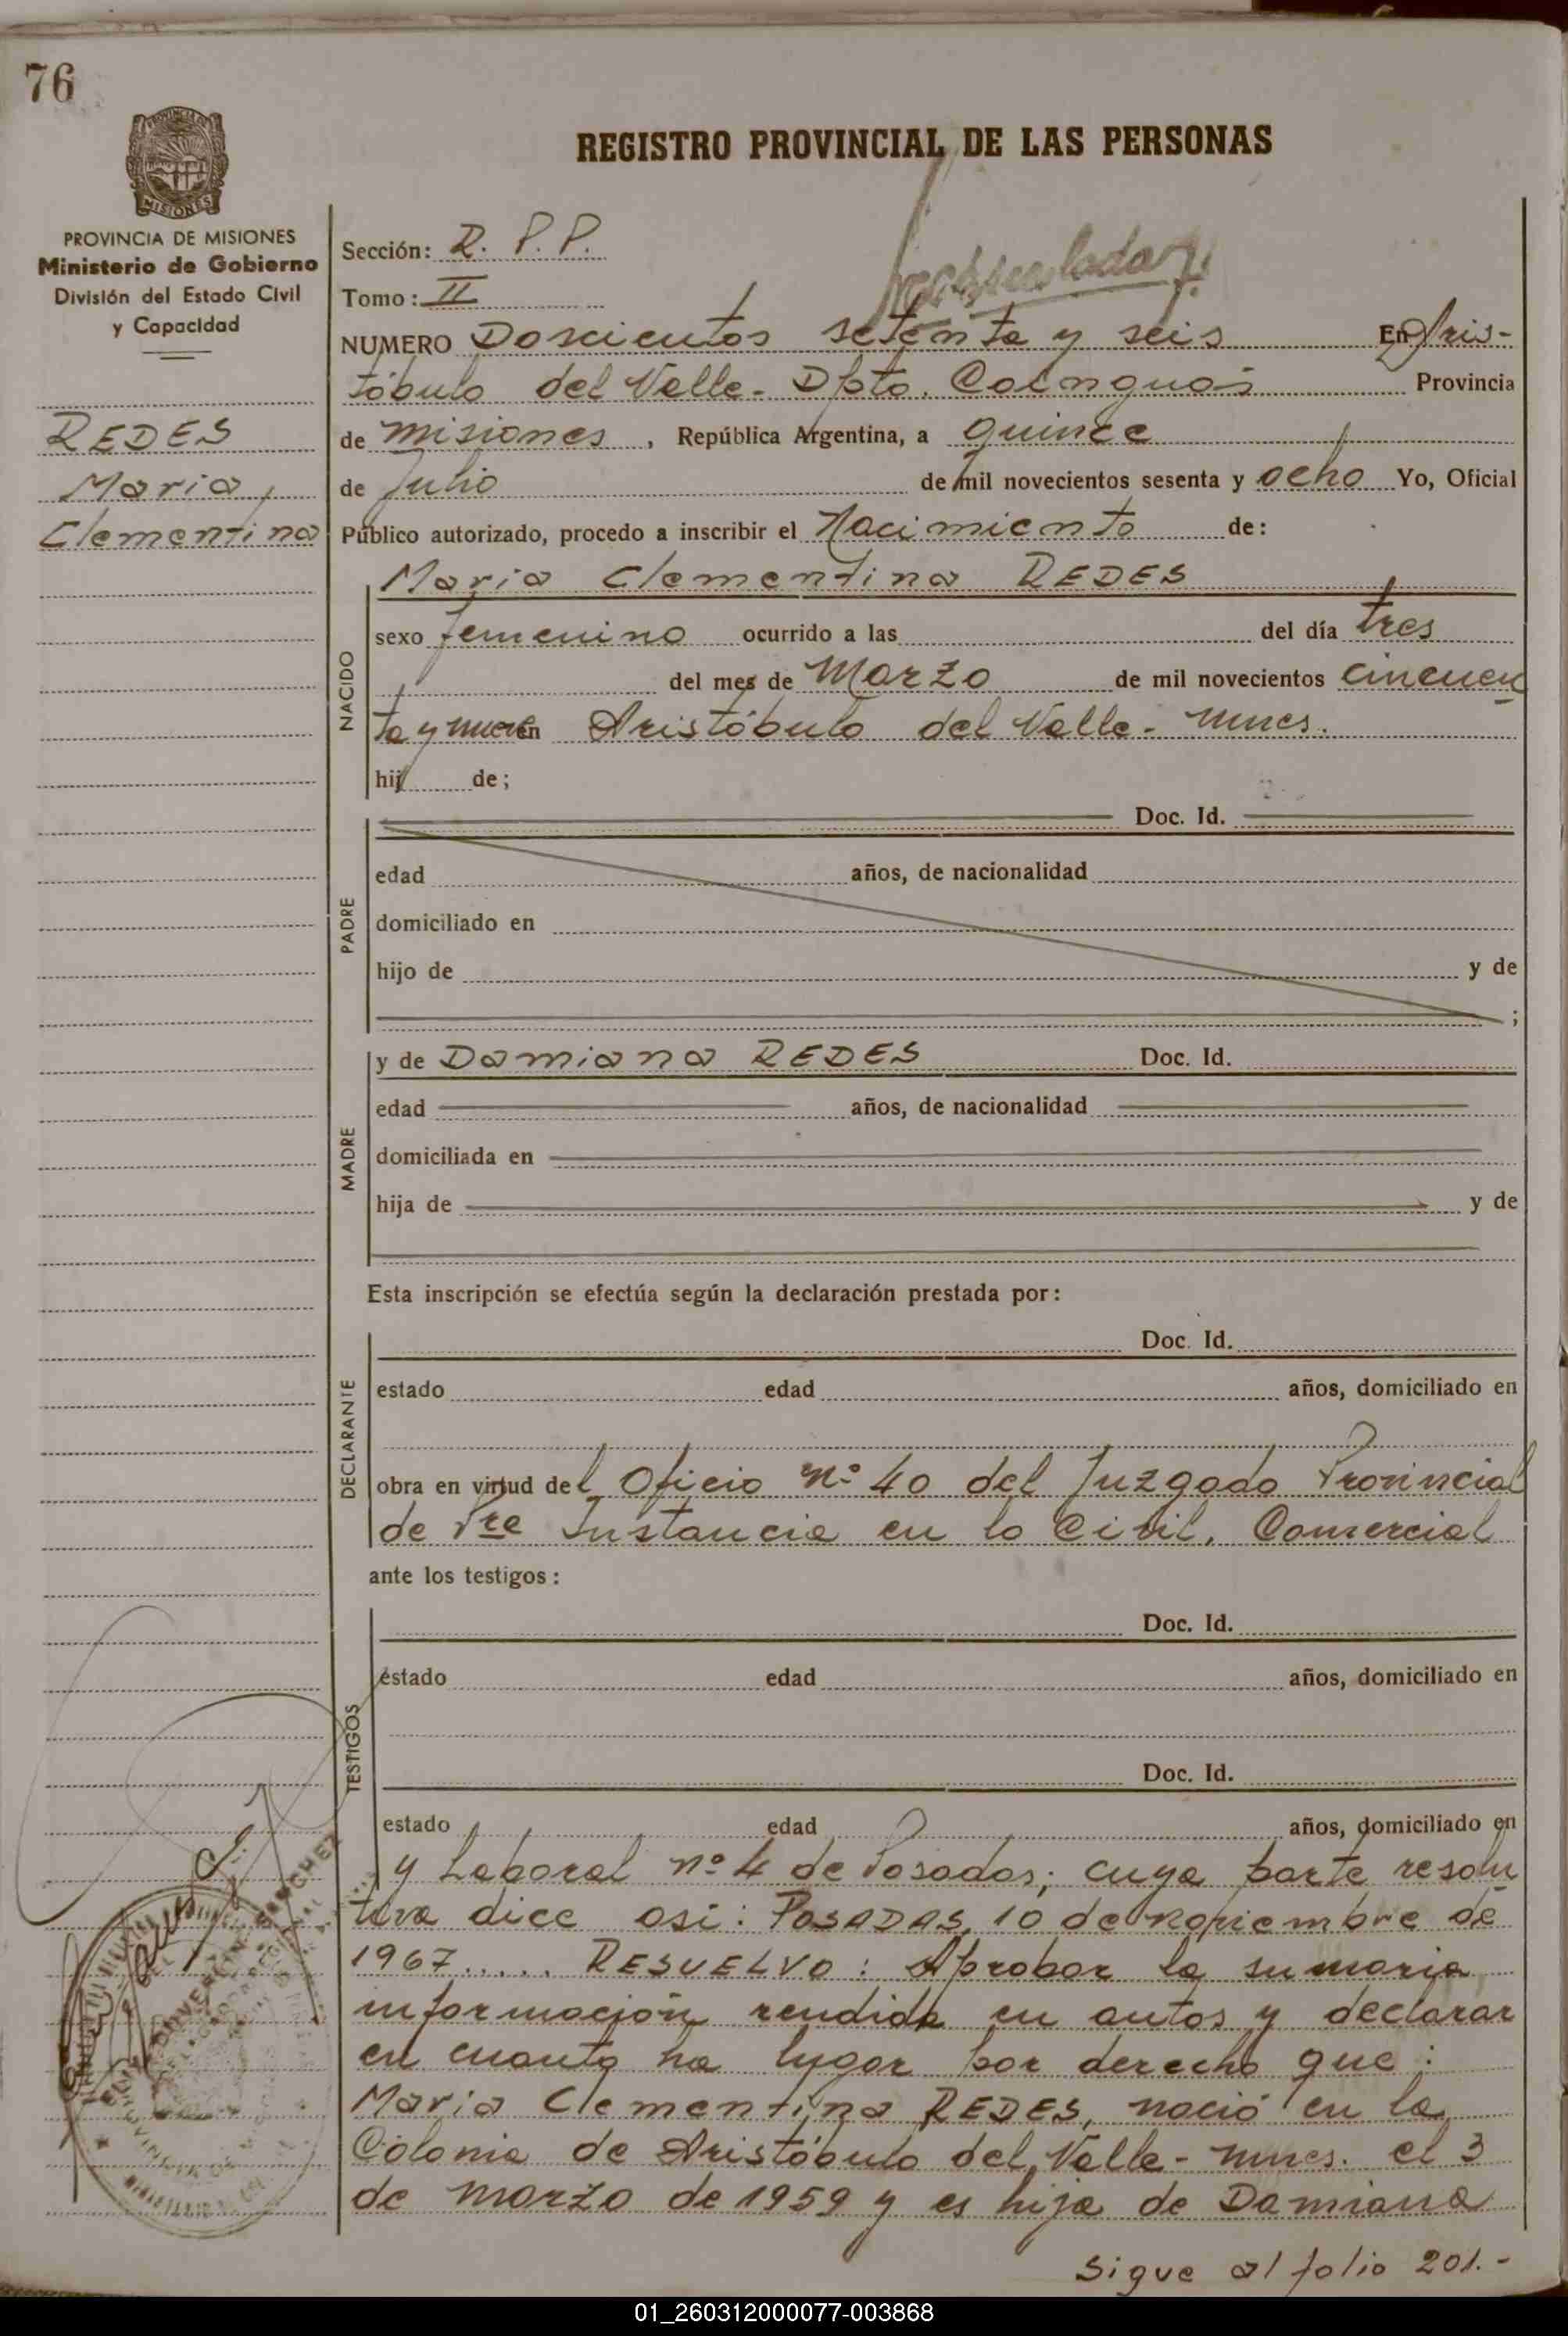 76
REGISTRO PROVINCIAL DE LAS PERSONAS
MISIONES
PROVINCIA DE MISIONES
Ministerio de Gobierno
División del Estado Civil
y Capacidad
REDES
Maria
Clementina
Sección: R. P. P.
Tomo: II
NUMERO Doscientos setenta y seis En Aris-
tóbulo del Valle - Dpto. Cainguás Provincia
de Misiones, República Argentina, a quince
de Julio de mil novecientos sesenta y ocho Yo, Oficial
Público autorizado, procedo a inscribir el Nacimiento de:
Maria Clementina REDES
NACIDO
sexo femenino ocurrido a las del día tres
del mes de Marzo de mil novecientos cincuen
ta y nueve en Aristóbulo del Valle - Mnes.
hij de;
PADRE
Doc. Id.
edad años, de nacionalidad
domiciliado en
hijo de y de
;
MADRE
y de Damiana REDES Doc. Id.
edad años, de nacionalidad
domiciliada en
hija de y de
Esta inscripción se efectúa según la declaración prestada por:
DECLARANTE
Doc. Id.
estado edad años, domiciliado en
obra en virtud del Oficio nº 40 del Juzgado Provincial
de 1re Instancia en lo Civil, Comercial
ante los testigos:
TESTIGOS
Doc. Id.
estado edad años, domiciliado en
Doc. Id.
estado edad años, domiciliado en
y Laboral nº 4 de Posadas; cuya parte resolu
tiva dice asi: POSADAS, 10 de noviembre de
1967..... RESUELVO: Aprobar la sumaria
información rendida en autos y declarar
en cuanto ha lugar por derecho que:
Maria Clementina REDES, nació en la
Colonia de Aristóbulo del Valle - Mnes. el 3
de marzo de 1959 y es hija de Damiana
Sigue al folio 201.-
01_260312000077-003868